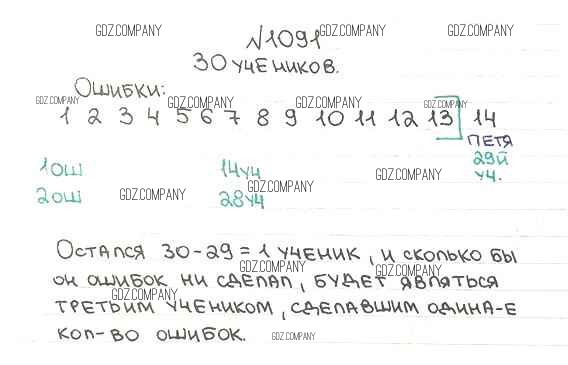 GDZ.COMPANY GDZ.COMPANY GDZ.COMPANY
№1091
30 УЧЕНИКОВ.
ОШИБКИ:
GDZ.COMPANY GDZ.COMPANY GDZ.COMPANY GDZ.COMPANY
1 2 3 4 5 6 7 8 9 10 11 12 13 14
ПЕТЯ
29Й
УЧ.
1 ОШ 14 УЧ GDZ.COMPANY
2 ОШ GDZ.COMPANY 28 УЧ GDZ.COMPANY
ОСТАЛСЯ 30-29=1 УЧЕНИК, И СКОЛЬКО БЫ
GDZ.COMPANY GDZ.COMPANY
ОН ОШИБОК НИ СДЕЛАЛ, БУДЕТ ЯВЛЯТЬСЯ
GDZ.COMPANY
ТРЕТЬИМ УЧЕНИКОМ, СДЕЛАВШИМ ОДИНА-Е
КОЛ-ВО ОШИБОК. GDZ.COMPANY